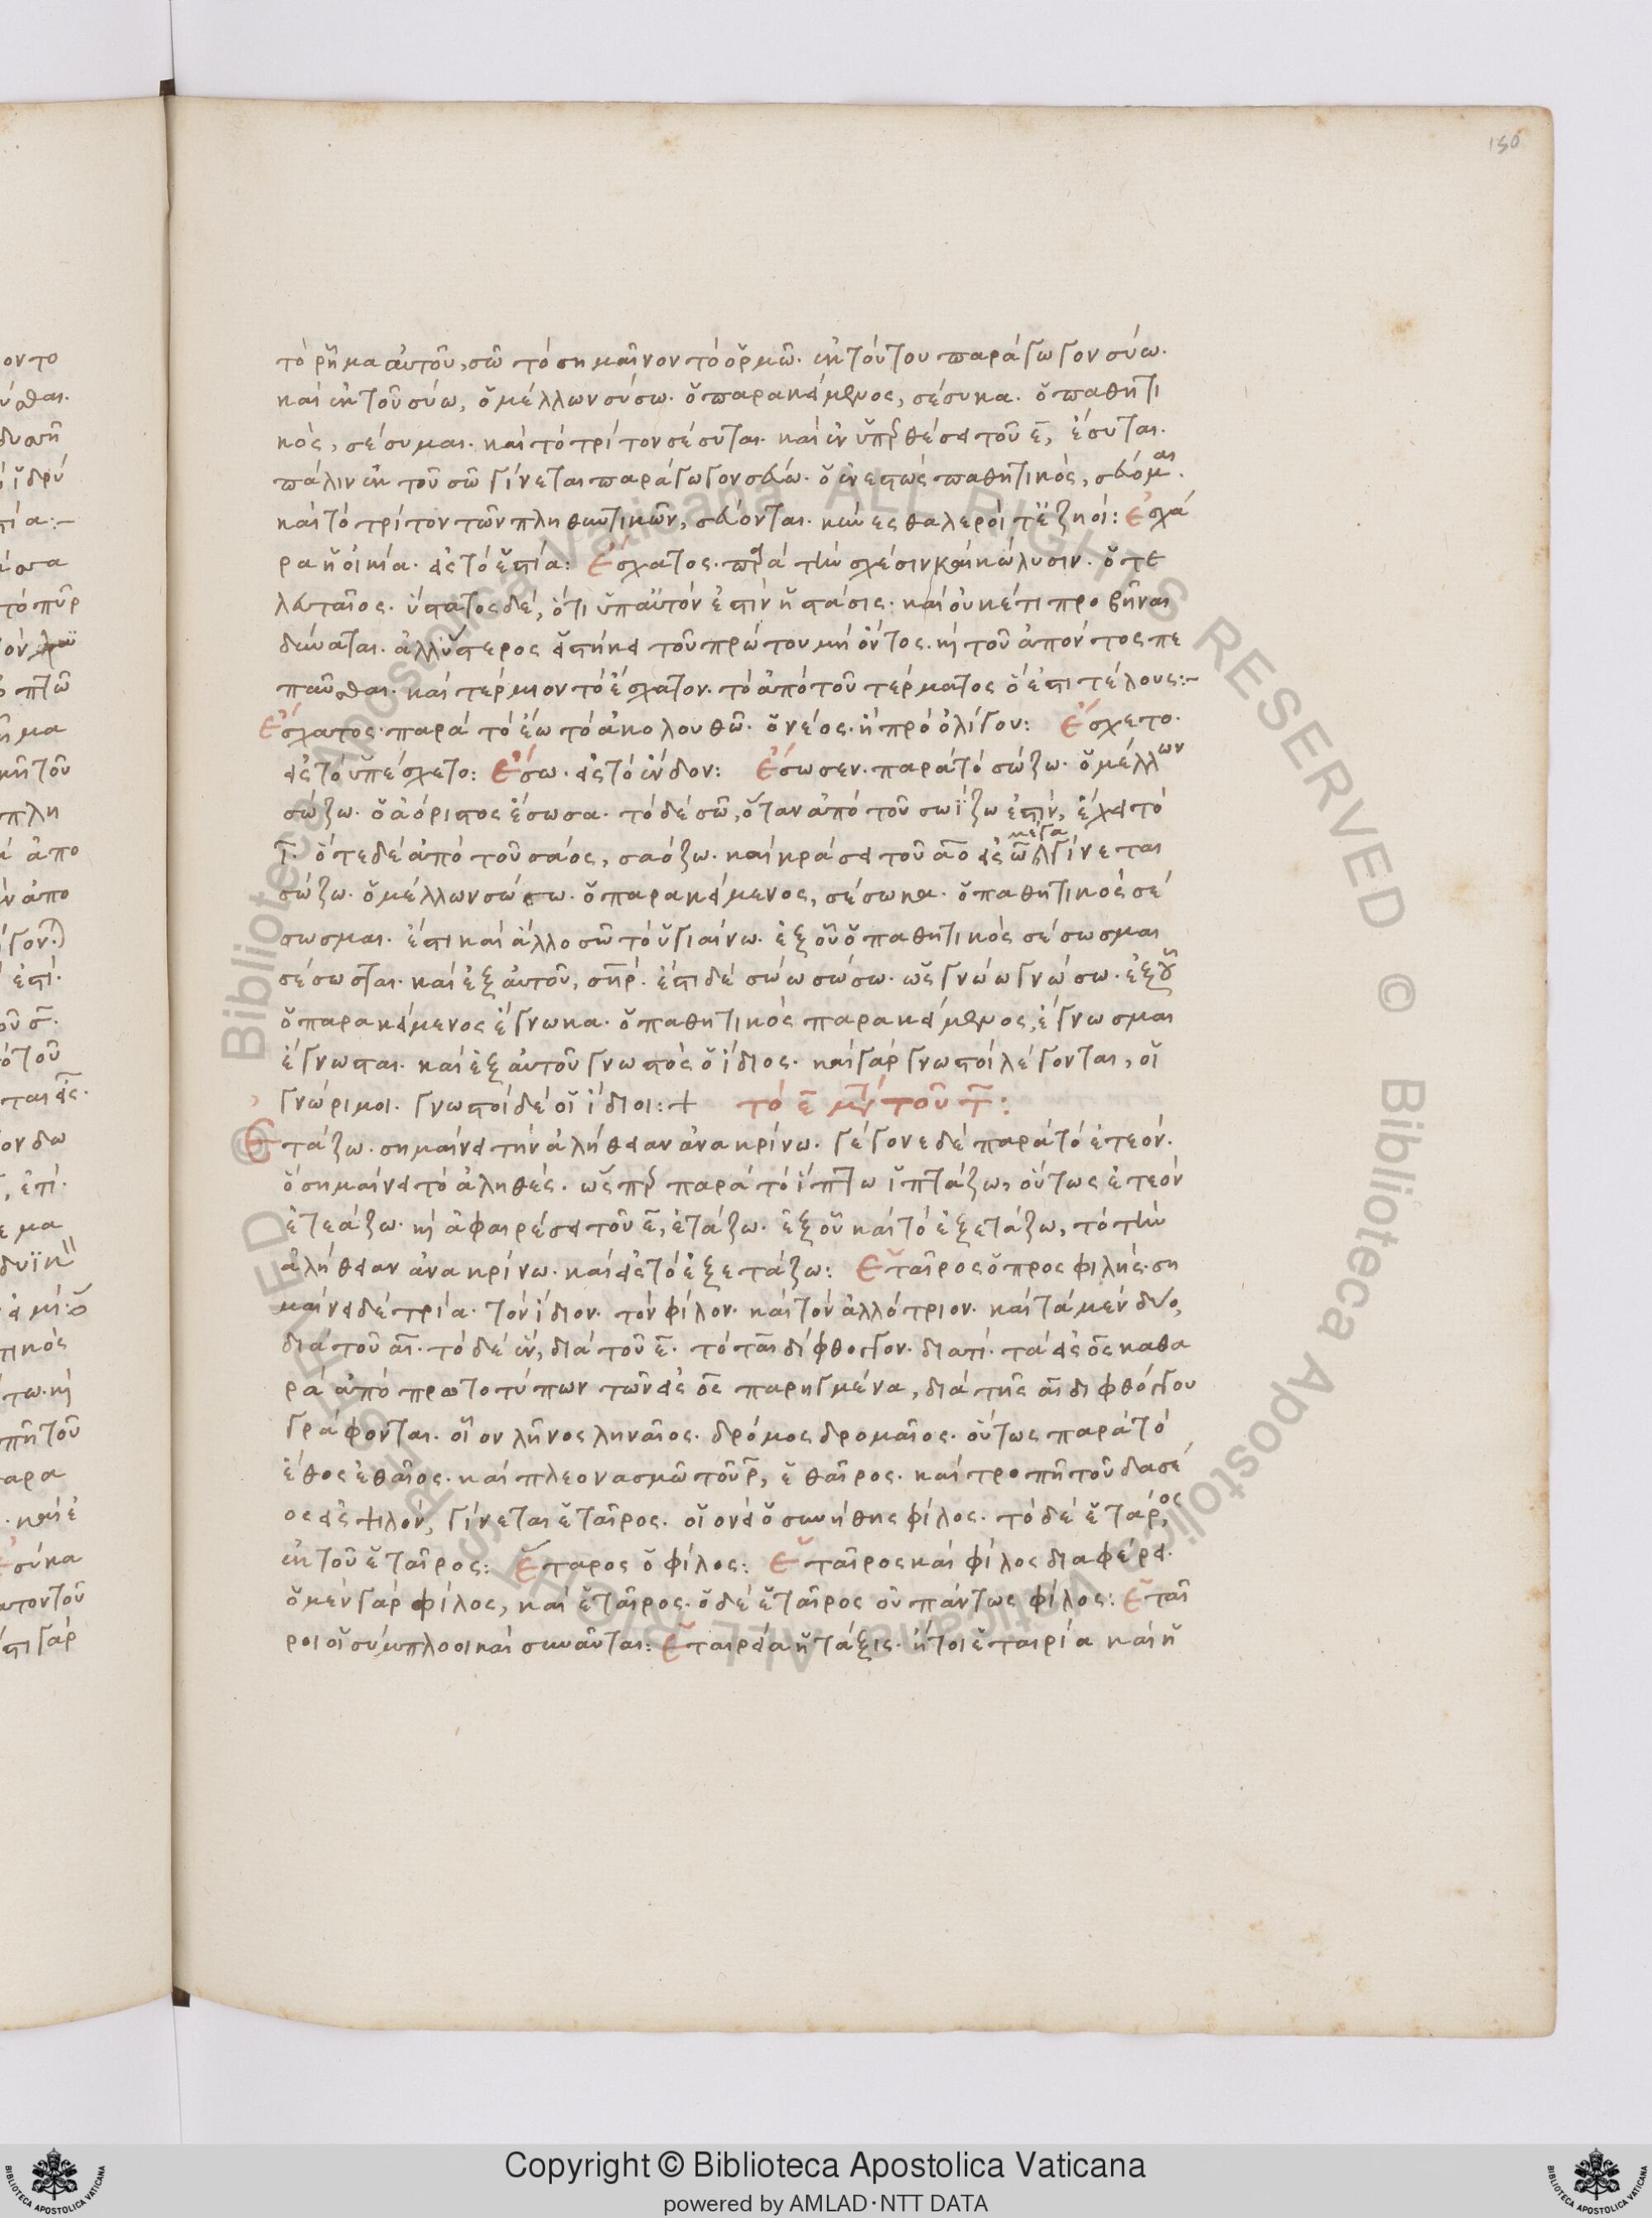 150
τὸ ῥῆμα αὐτοῦ, σῶ τὸ σημαῖνον τὸ ὁρμῶ. ἐκ τούτου παράγωγον σύω.
καὶ ἐκ τοῦ σύω, ὁ μέλλων σύσω. ὁ παρακείμενος, σέσυκα. ὁ παθητι
κὸς, σέσυμαι. καὶ τὸ τρίτον σέσυται. καὶ ἐν ὑπερθέσει τοῦ ε̄, ἔσυται.
πάλιν ἐκ τοῦ σῶ γίνεται παράγωγον σεύω. ὁ ἐνεστὼς παθητικὸς, σεύομαι.
καὶ τὸ τρίτον τῶν πληθυντικῶν, σεύονται. κύνες θαλεροί τ' αἰζηοί: Ἐσχά
ρα ἡ οἰκία. εἰς τὸ ἑστία: Ἔσχατος. παρὰ τὴν σχέσιν καὶ κώλυσιν. ὁ τε
λευταῖος. ὕστατος δέ, ὅτι ὑπ' αὐτόν ἐστιν ἡ στάσις. καὶ οὐκέτι προβῆναι
δύναται. ἀλλ' ὕστερος ἑστήκει τοῦ πρώτου μὴ ὄντος. ἢ τοῦ ἀπόντος πε
παῦσθαι. καὶ τέρμιον τὸ ἔσχατον. τὸ ἀπὸ τοῦ τέρματος ὅ ἐστι τέλους:-
Ἔσχατος. παρὰ τὸ ἕω τὸ ἀκολουθῶ. ὁ νέος. ἢ πρὸ ὀλίγου: Ἔσχετο.
εἰς τὸ ὑπέσχετο: Ἔσω. εἰς τὸ ἔνδον: Ἔσωσεν. παρὰ τὸ σώζω. ὁ μέλλων
σώζω. ὁ ἀόριστος ἔσωσα. τὸ δὲ σῶ, ὅταν ἀπὸ τοῦ σωΐζω ἐστίν, ἔχει τὸ
ῑ. ὅτε δὲ ἀπὸ τοῦ σάος, σαόζω. καὶ κράσει τοῦ ᾱο εἰς ω̄ μέγα γίνεται
σώζω. ὁ μέλλων σώσω. ὁ παρακείμενος, σέσωκα. ὁ παθητικὸς σέ
σωσμαι. ἔστι καὶ ἄλλο σῶ τὸ ὑγιαίνω. ἐξ οὗ ὁ παθητικὸς σέσωσμαι
σέσωσται. καὶ ἐξ αὐτοῦ, σωτήρ. ἔστι δὲ σώω σώσω. ὡς γνώω γνώσω. ἐξ οὗ
ὁ παρακείμενος ἔγνωκα. ὁ παθητικὸς παρακείμενος, ἔγνωσμαι
ἔγνωσται. καὶ ἐξ αὐτοῦ γνωστὸς ὁ ἴδιος. καὶ γὰρ γνωστοὶ λέγονται, οἱ
γνώριμοι. γνωστοὶ δὲ οἱ ἴδιοι:+ τὸ ε̄ μετὰ τοῦ τ̄:
Ἐτάζω. σημαίνει τὴν ἀλήθειαν ἀνακρίνω. γέγονε δὲ παρὰ τὸ ἐτεόν.
ὃ σημαίνει τὸ ἀληθές. ὥσπερ παρὰ τὸ ἵπτω ἱπτάζω, οὕτως ἐτεὸν
ἐτεάζω. καὶ ἀφαιρέσει τοῦ ε̄, ἐτάζω. ἐξ οὗ καὶ τὸ ἐξετάζω, τὸ τὴν
ἀλήθειαν ἀνακρίνω. καὶ εἰς τὸ ἐξετάζω: Ἑταῖρος ὁ προσφιλής. ση
μαίνει δὲ τρία. τὸν ἴδιον. τὸν φίλον. καὶ τὸν ἀλλότριον. καὶ τὰ μὲν δύο,
διὰ τοῦ αι. τὸ δὲ ἕν, διὰ τοῦ ε̄. τὸ ται δίφθογγον. διατί. τὰ εἰς ος καθα
ρὰ ἀπὸ πρωτοτύπων τῶν εἰς ος παρηγμένα, διὰ τῆς αι διφθόγγου
γράφονται. οἷον ληνὸς ληναῖος. δρόμος δρομαῖος. οὕτως παρὰ τὸ
ἔθος ἐθαῖος. καὶ πλεονασμῶ τοῦ ρ̄, ἐθαῖρος. καὶ τροπῆ τοῦ δασέ
ος εἰς ψιλόν, γίνεται ἑταῖρος. οἱονεὶ ὁ συνήθης φίλος. τὸ δὲ ἕταρος,
ἐκ τοῦ ἑταῖρος: Ἕταρος ὁ φίλος: Ἑταῖρος καὶ φίλος διαφέρει.
ὁ μὲν γὰρ φίλος, καὶ ἑταῖρος. ὁ δὲ ἑταῖρος οὐ πάντως φίλος: Ἑταῖ
ροι οἱ σύμπλοοι καὶ συνῶνται: Ἑταιρεία ἡ τάξις. ἤτοι ἑταιρία καὶ ἡ
Copyright © Biblioteca Apostolica Vaticana
powered by AMLAD·NTT DATA